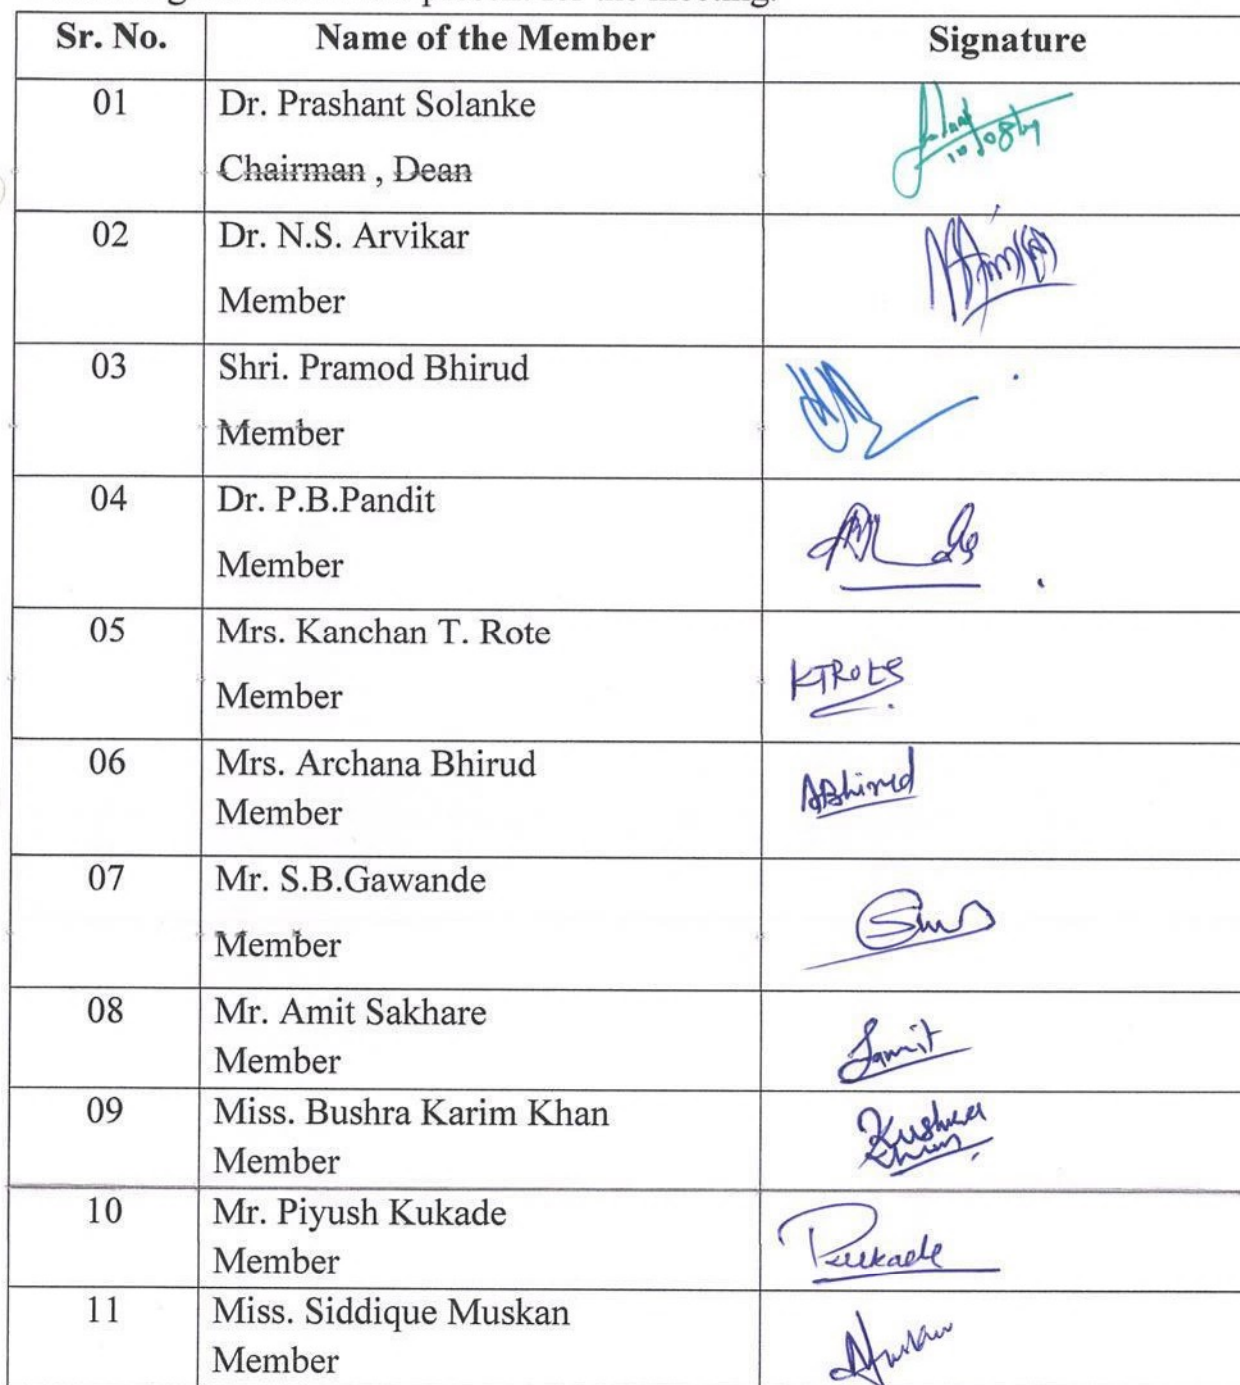 Sr. No. Name of the Member Signature
01 Dr. Prashant Solanke
Chairman , Dean
02 Dr. N.S. Arvikar
Member
03 Shri. Pramod Bhirud
Member
04 Dr. P.B.Pandit
Member
05 Mrs. Kanchan T. Rote KTRote
Member
06 Mrs. Archana Bhirud ABhirud
Member
07 Mr. S.B.Gawande
Member
08 Mr. Amit Sakhare
Member
09 Miss. Bushra Karim Khan
Member
10 Mr. Piyush Kukade Pkukade
Member
11 Miss. Siddique Muskan
Member